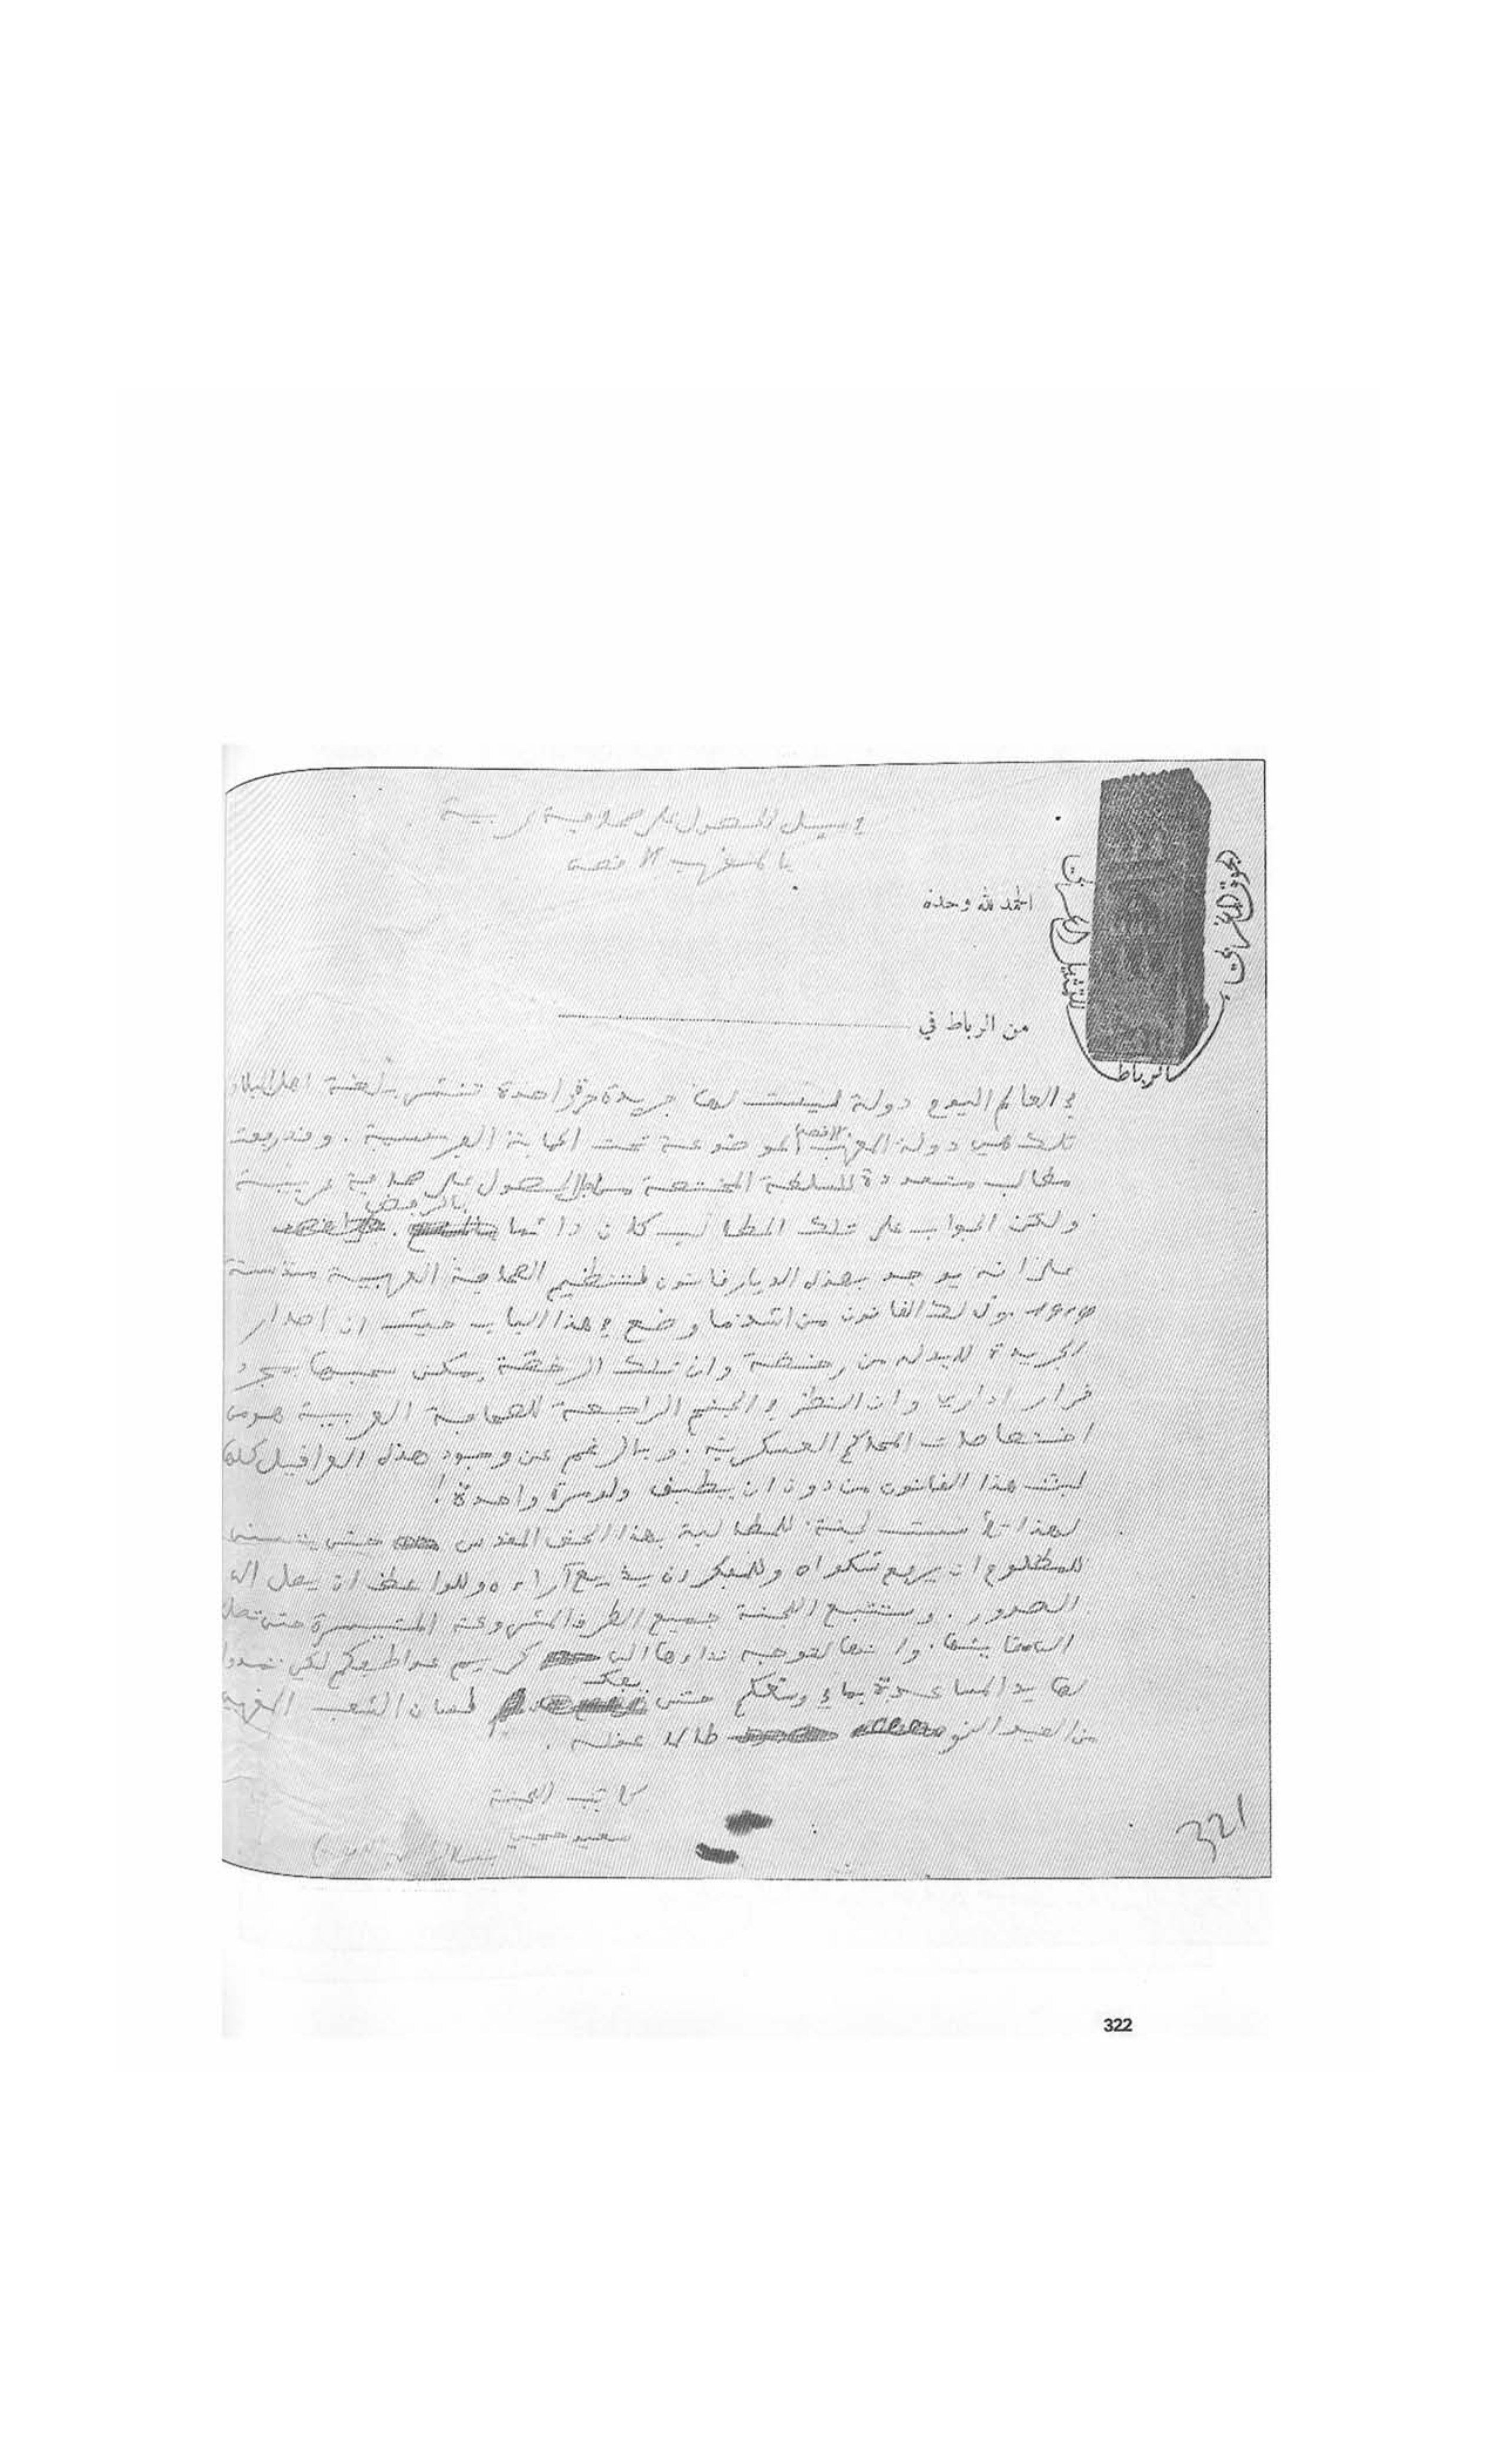 في سبيل الحصول على صحافة عربية
بالمغرب الاقصى
الحمد لله وحده
الجوق المغربي
للتمثيل العربي
الرباط
من الرباط في
في العالم اليوم دولة ليست لها جريدة حرة واحدة تنشر بلغة اهل البلاد
تلك هي دولة المغرب الاقصى الموضوعة تحت الحماية الفرنسية. وقد رفعت
مطالب متعددة للسلطة المختصة من اجل الحصول على صحافة عربية
ولكن الجواب على تلك المطالب كان دائما بالرفض
على انه يوجد بهذه الديار قانون لتنظيم الصحافة العربية منذ سنة
القانون من اشد ما وضع في هذا الباب حيث ان اصدار
الجريدة لابد له من رخصة وان تلك الرخصة يمكن سحبها بمجرد
قرار اداري وان النظر في الجنح الراجعة للصحافة العربية هو من
اختصاصات المحاكم العسكرية. وبالرغم عن وجود هذه العراقيل كلها
لبث هذا القانون من دون ان يطبق ولو مرة واحدة!
لهذا تأسست لجنة للمطالبة بهذا الحق المقدس حتى يتسنى
للمظلوم ان يرفع شكواه وللمفكر ان يذيع آراءه وللواعظ ان يصل الى
الصدور. وستتبع اللجنة جميع الطرق المشروعة المتيسرة حتى تصل
الى غايتها. وانها لتوجه نداءها الى كريم عواطفكم لكي تمدوا
لها يد المساعدة بما في وسعكم حتى يفك لسان الشعب المغربي
من القيد الذي طالما عقله.
كاتب اللجنة
سعيد حجي
بسلا (المغرب الاقصى)
321
322